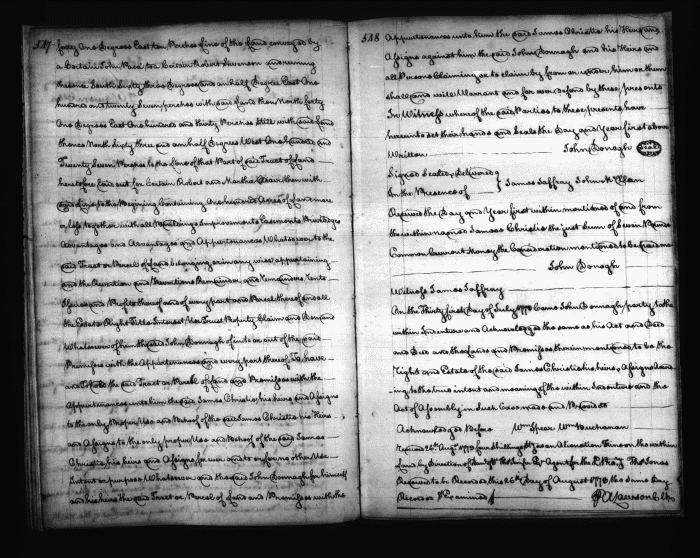 547
forty One Degrees East ten Perches to line of the Land conveyed by
a Certain John Pace to a Certain Robert Stevenson and running
thence South Sixty three Degrees and an half Degree East One
hundred and twenty Seven perches with said Land then North forty
One Degrees East One hundred and thirty Perches Still with said Land
thence North Sixty three and an half Degrees West One hundred and
Twenty Seven Perches to the line of that Part of said Tract of Land
heretofore laid out for Certain Robert and Martha then with
said line to the Beginning Containing One hundred Acres of Land more
or less together with all Buildings Improvements Easements Priviledges
Advantages and Appurtenances Whatsoever to the
said Tract or Parcel of Land belonging or in any wise appertaining
and the Reversion and Reversions Remainder and Remainders Rents
Issues and Profits thereof and of every part and Parcel thereof and all
the Estate Right Title Interest Use Trust Property Claim and Demand
Whatsoever of him the said John Donagh of in to or out of the said
Premises with the Appurtenances and every part thereof To have
and To hold the said Tract or Parcel of Land and Premises with the
Appurtenances unto him the said James Christie his heirs and Assigns
to the only Proper Use and Behoof of the said James Christie his Heirs
and Assigns to the only proper Use and Behoof of the said James
Christie his heirs and Assigns for ever and to or for no other Use
Intent or purpose Whatsoever and the said John Donnagh for himself
and his heirs the said Tract or Parcel of Land and Premises with the
548
Appurtenances unto him the said James Christie his Heirs and
Assigns against him the said John Donnagh and his Heirs and
all Persons Claiming or to claim by from or under him or them
shall and will Warrant and for ever defend by these presents
In Witness whereof the said Parties to these presents have
hereunto set their hands and Seals the Day and Year first above
Written John Donagh
Signed Sealed & Delivered
In the Presence of James Jaffray John McClan
Received the Day and Year first within mentioned of and from
the within named James Christie the just Sum of Seven Pounds
Common Current Money the Consideration mentioned to be
John Donagh
Witness James Jaffray
On the Thirty first Day of July 1773 Came John Donnagh party to the
within Indenture and Acknowledged the same as his Act and Deed
and Deed and the Land and Premises therein mentioned to be the
Right and Estate of the said James Christie his heirs & Assigns Accord
ing to the true intent and meaning of the within Indenture and the
Act of Assembly in Such Case made and Provided
Acknowledged Before Wm Spear Wm Buchanan
Received 26th Augt. 1773 four Shillings Stg as an Alienation Fine on the within
Land by direction of Agent for the Ld Proprietary Thos Jones
Received to be Recorded this 26th Day of August 1773 the Same Day
Recorded & Examined
A Lawson Clk